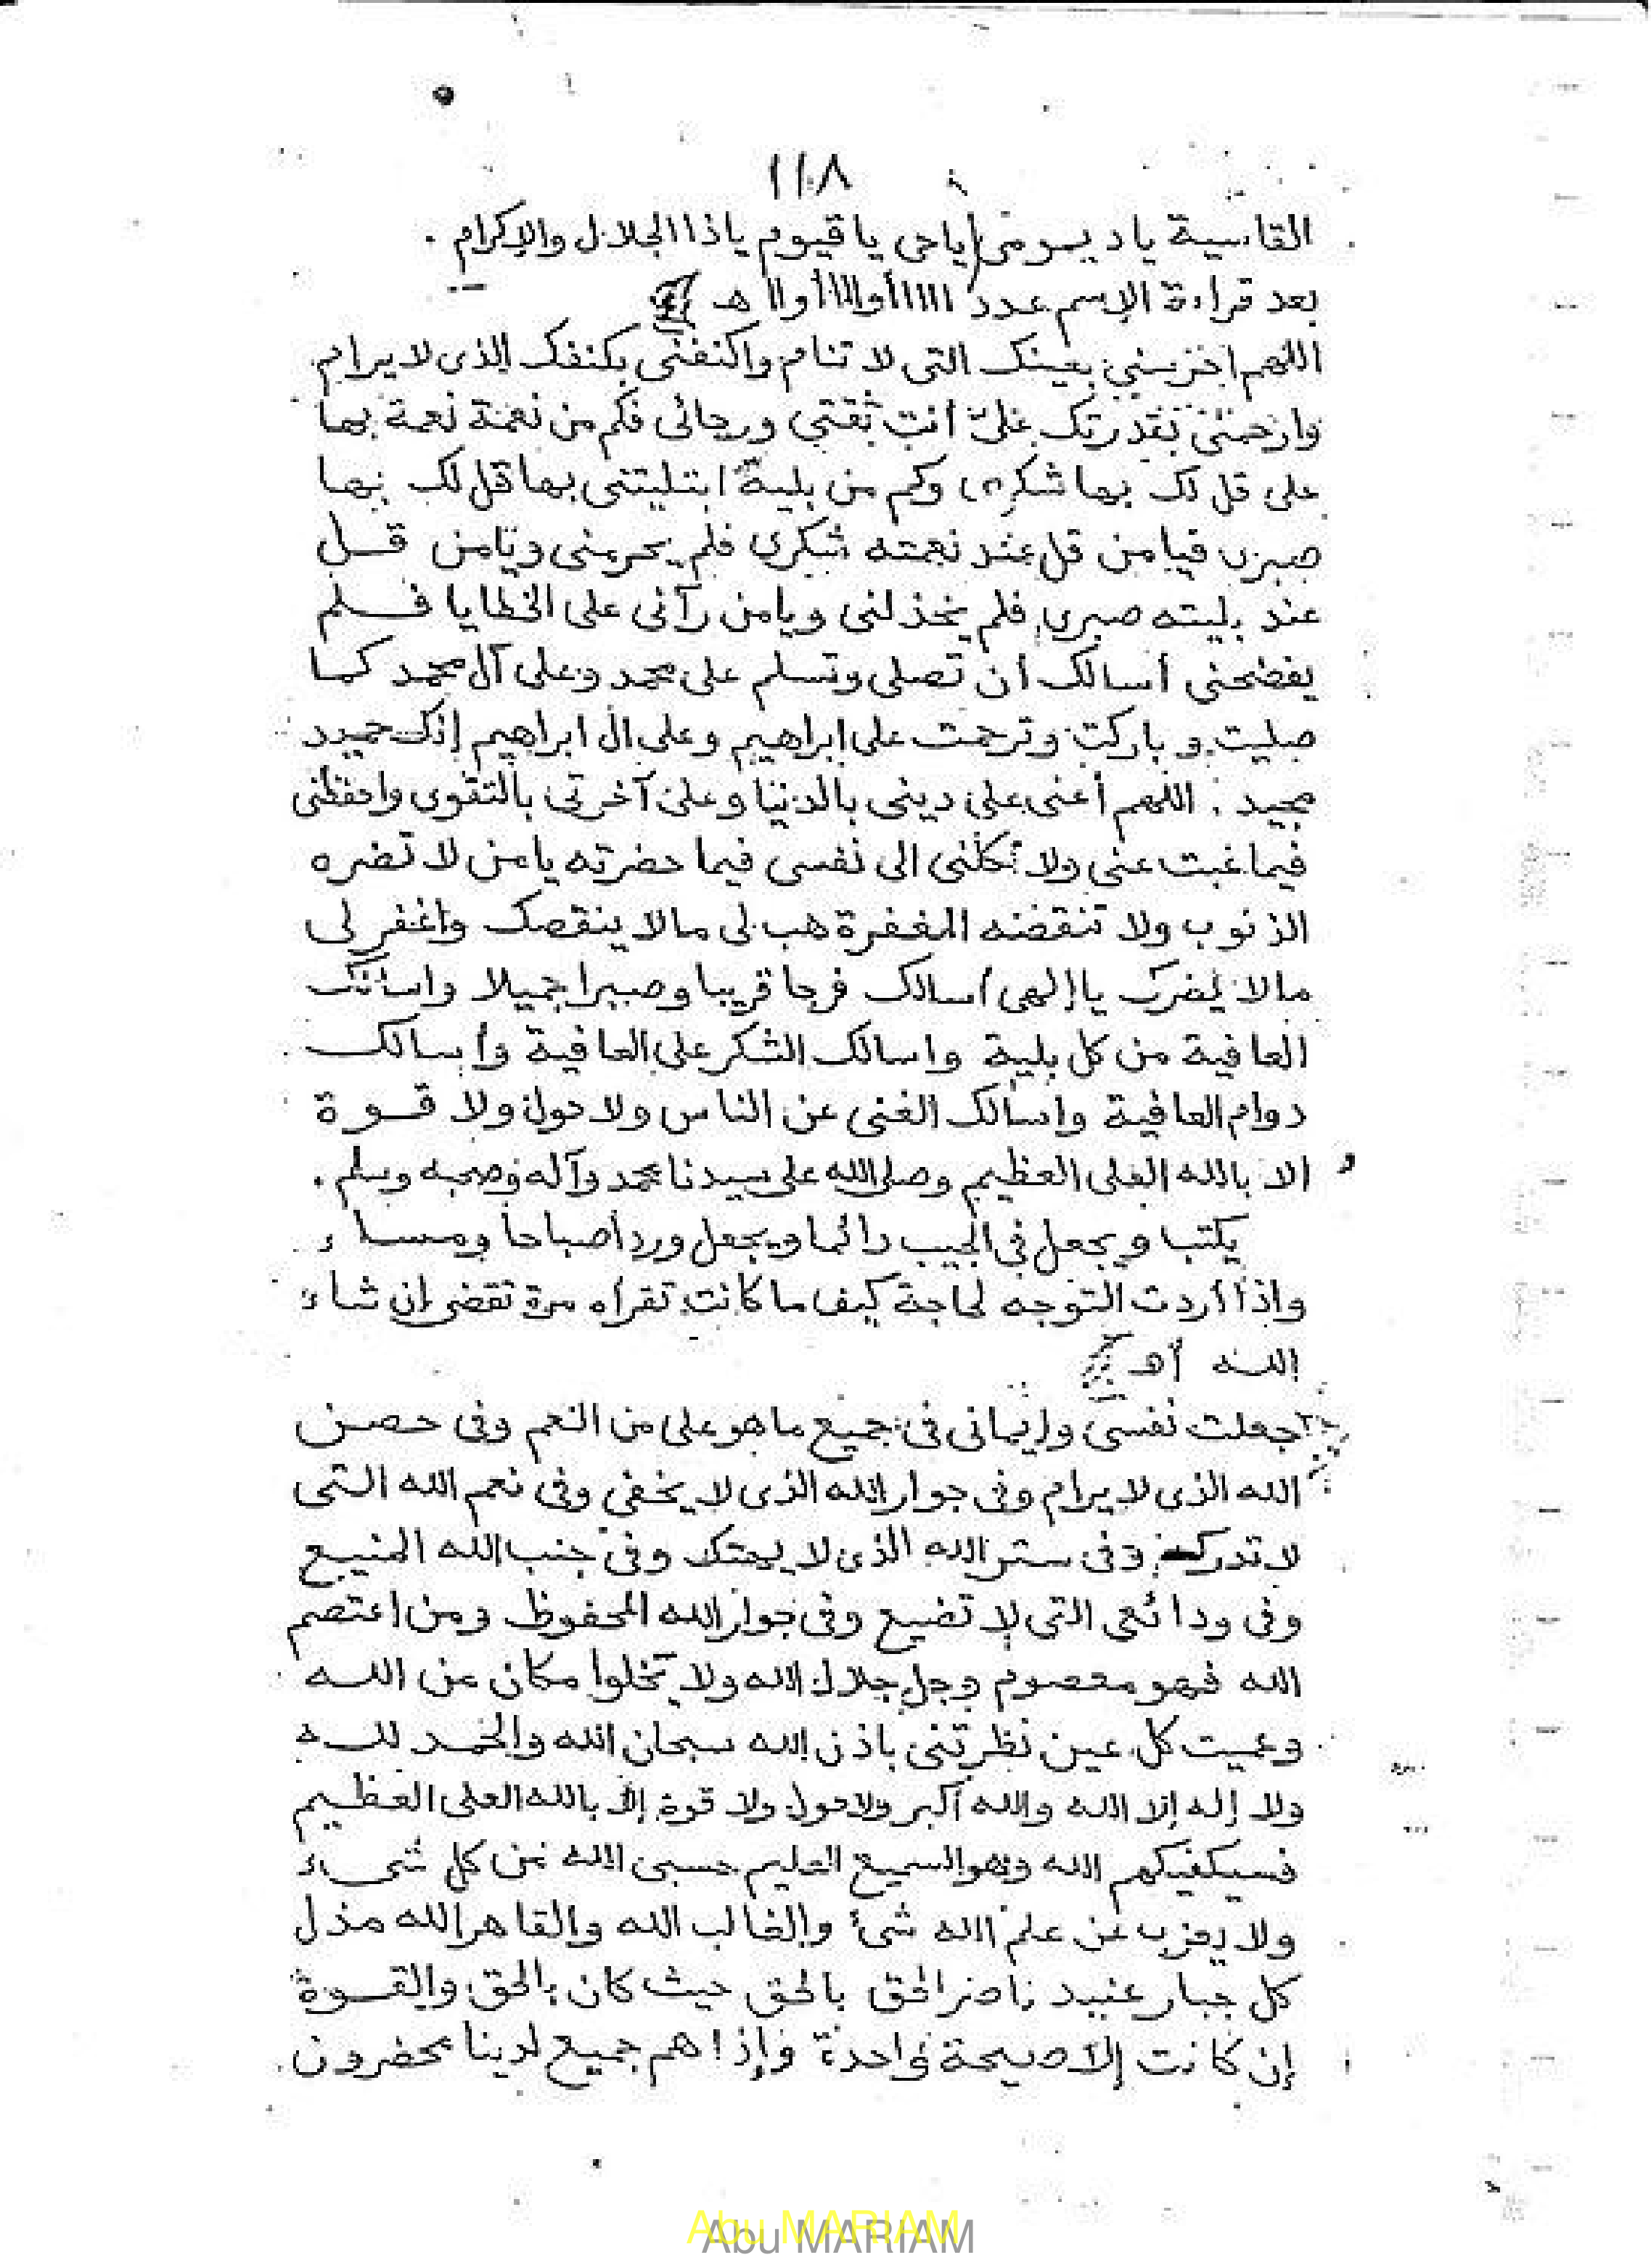 ١١٨
القاسية يا ديمومى ياحى يا قيوم ياذا الجلال والإكرام .
بعد قراءة الإسم عدد ١١١١١ أو ١١١١ أو ١١ هـ
اللهم احرسنى بعينك التى لا تنام واكنفنى بكنفك الذى لا يرام
وارحمنى بقدرتك علىّ انت ثقتى ورجائى فكم من نعمة نعمة بها
على قل لك بها شكرى وكم من بلية ابتليتنى بها قل لك بها
صبرى فيا من قل عند نعمته شكرى فلم يحرمنى ويامن قل
عند بليته صبرى فلم يخذلنى ويامن رآنى على الخطايا فلم
يفضحنى أسالك أن تصلى وتسلم على محمد وعلى آل محمد كما
صليت و باركت وترحمت على ابراهيم وعلى ال ابراهيم إنك حميد
مجيد . اللهم أعنى على دينى بالدنيا وعلى آخرتى بالتقوى واحفظنى
فيما غبت عنى ولا تكلنى الى نفسى فيما حضرته يا من لا تضره
الذنوب ولا تنقضه المغفرة هب لى مالا ينقصك واغفر لى
مالا يضرك يا إلهى اسالك فرجا قريبا وصبرا جميلا واسالك
العافية من كل بلية واسالك الشكر على العافية وأسالك
دوام العافية واسالك الغنى عن الناس ولا حول ولا قوة
الا بالله العلى العظيم وصلى الله على سيدنا محمد وآله وصحبه وسلم .
يكتب ويجعل فى الجيب دائما ويجعل وردا صباحا ومساء
واذا أردت التوجه لحاجة كيف ما كانت تقراه مرة تقضى إن شاء
الله أهـ
جعلت نفسى وإيمانى فى جميع ما هو على من النعم وفى حصن
الله الذى لا يرام وفى جوار الله الذى لا يخفى وفى نعم الله التى
لا تدرك وفى ستر الله الذى لا يهتك وفى جنب الله المنيع
وفى ودائعى التى لا تضيع وفى جوار الله المحفوظ ومن اعتصم
الله فهو معصوم وجل جلال الله ولا تخلوا مكان من الله
وعميت كل عين نظرتنى باذن الله سبحان الله والحمد لله
ولا إله إلا الله والله أكبر ولا حول ولا قوة إلا بالله العلى العظيم
فسيكفيكهم الله وهو السميع العليم حسبى الله من كل شىء
ولا يعزب عن علم الله شئ والغالب الله والقاهر الله مذل
كل جبار عنيد ناصر الحق بالحق حيث كان بالحق والقوة
إن كانت إلا صيحة واحدة وإذا هم جميع لدينا محضرون
Abu MARIAM